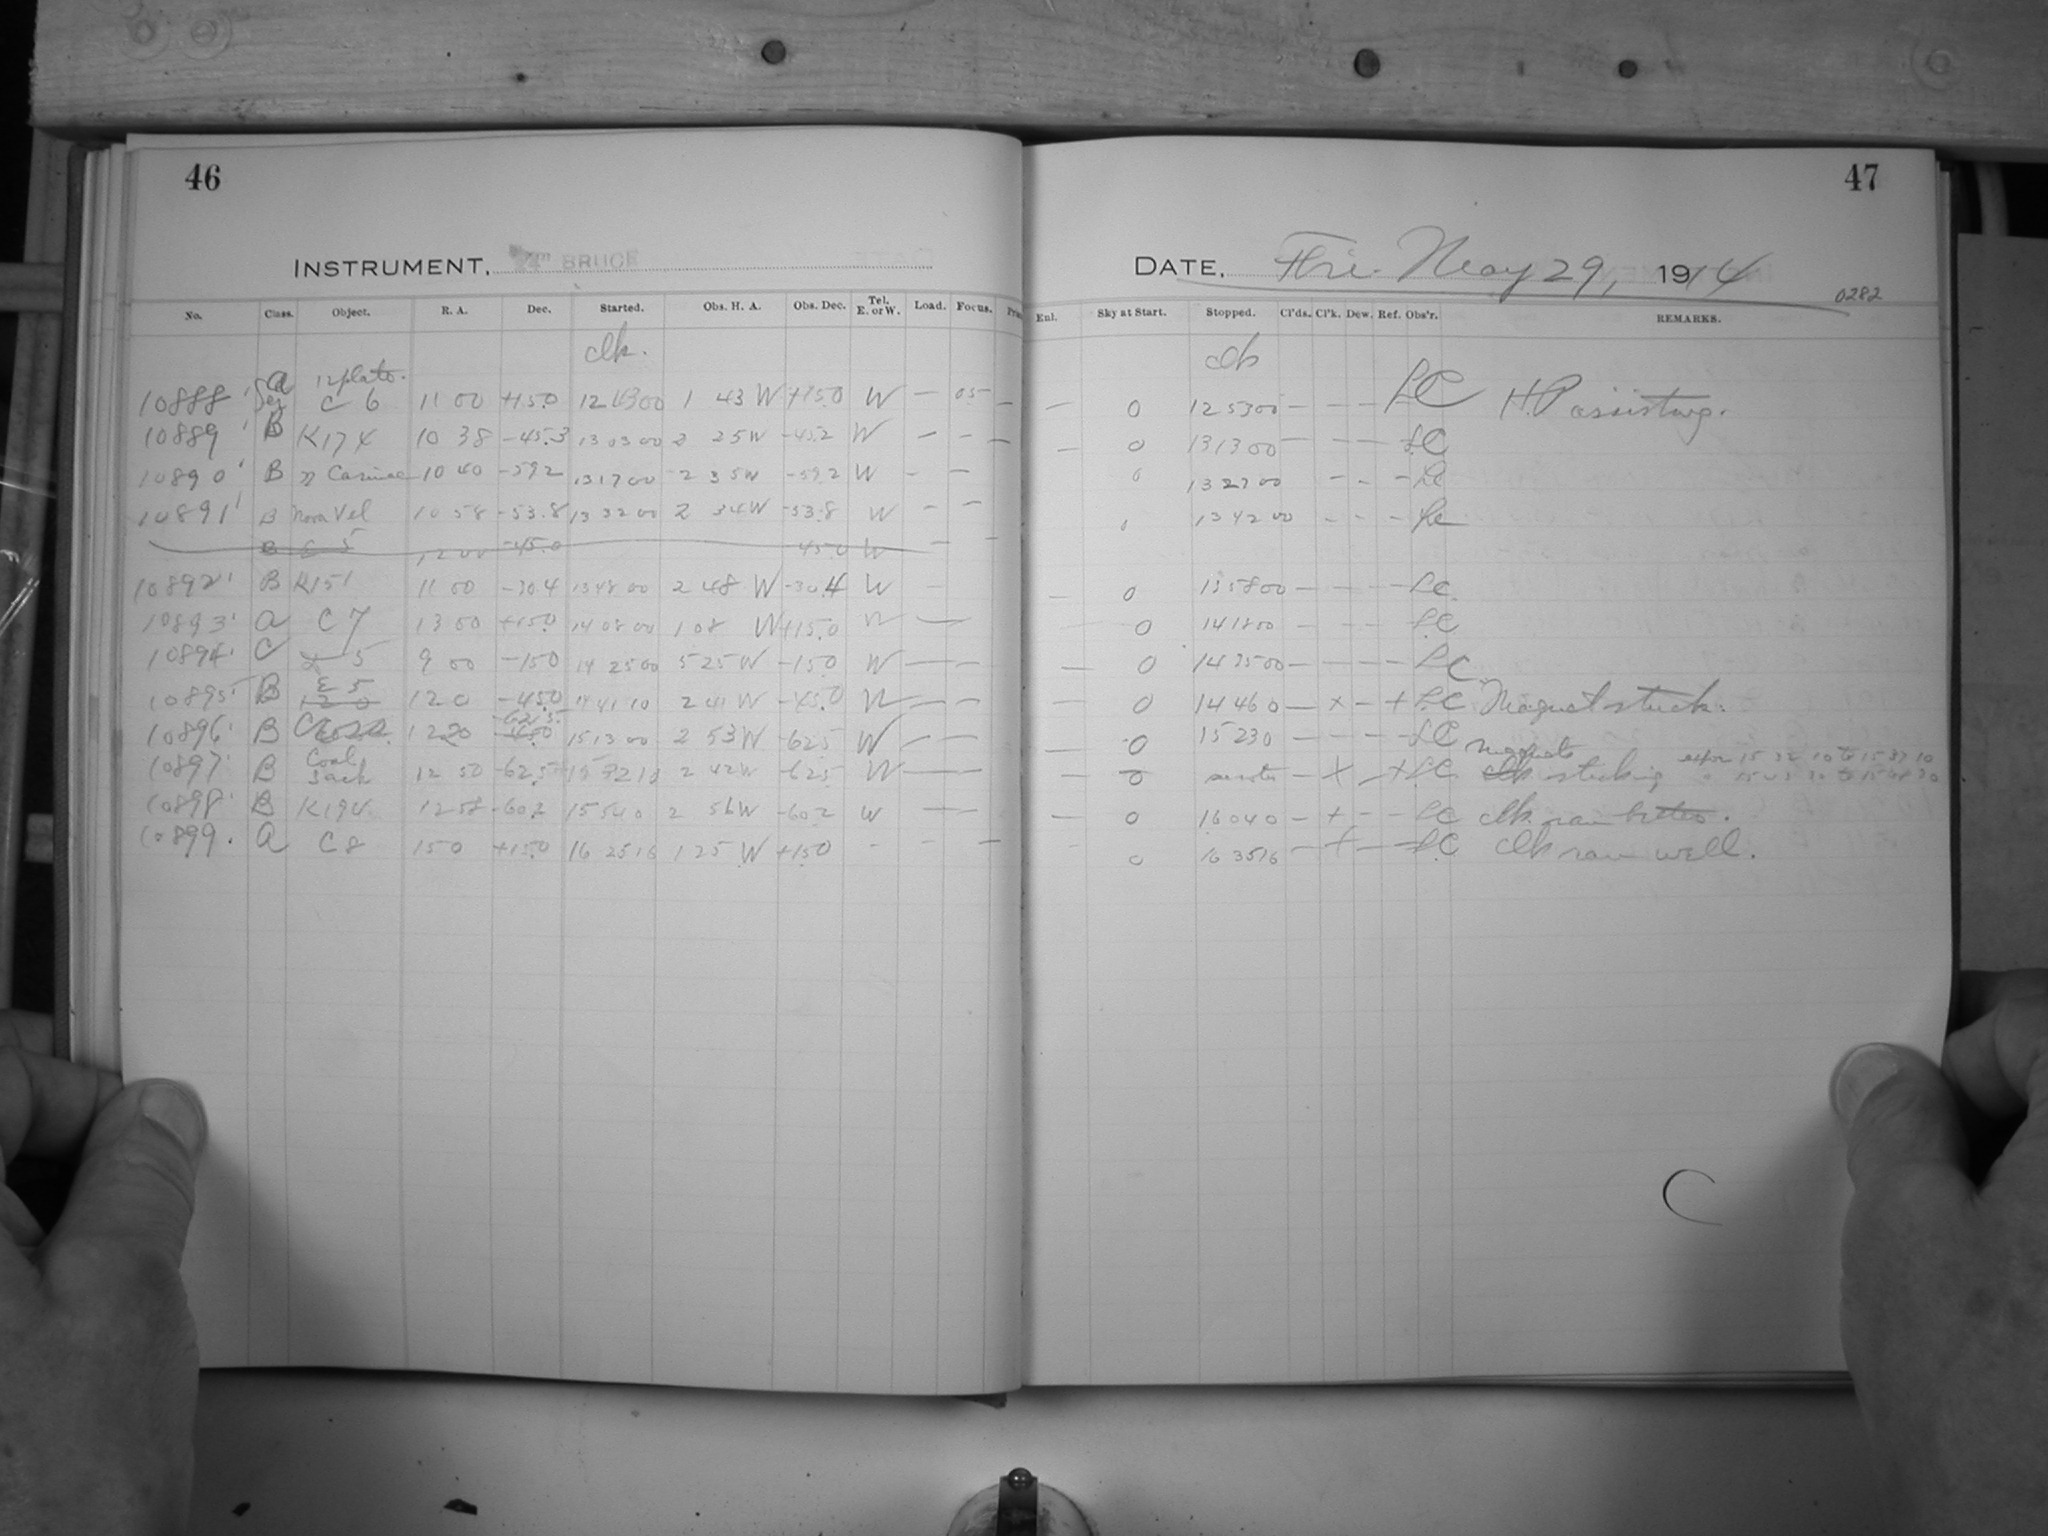 46
INSTRUMENT, BRUCE
No. Class. Object. R. A. Dec. Started. Obs. H. A. Obs. Dec. Tel. E. or W. Load. Focus.
clk.
a 12 plate.
10888 C 6 11 00 +15.0 1 43 W +15.0 W — 05 —
10889 B K174 10 38 -45.3 13 03 00 2 25 W -45.2 W — — —
10890 B η Carinae 10 40 -59.2 13 17 00 2 35 W -59.2 W — —
10891 B Nova Vel 10 58 -53.8 13 32 00 2 34 W -53.8 W — —
-45.0 45.0 W — —
10892 B K151 11 00 -30.4 13 48 00 2 48 W -30.4 W —
10893 a C 7 13 00 +15.0 14 08 00 1 08 W +15.0 W —
10894 C 5 9 00 -15.0 14 25 00 5 25 W -15.0 W — —
10895 B E 5 12 0 -45.0 14 41 10 2 41 W -45.0 W — —
10896 B 12 20 -62.5 15 13 00 2 53 W -62.5 W — —
10897 B Coal Sack 12 50 -62.5 15 32 10 2 42 W -62.5 W — —
10898 B K194 12 58 -60.2 15 54 0 2 56 W -60.2 W — —
10899 a C 8 15 0 +15.0 16 25 16 1 25 W +15.0 - - —
47
DATE, Fri. May 29, 1914
0282
Enl. Sky at Start. Stopped. Cl'ds. Cl'k. Dew. Ref. Obs'r. REMARKS.
clk
— 0 12 53 00 — — — LC H.P assisting.
— 0 13 13 00 — — — LC
0 13 27 00 — - — LC
0 13 42 00 - - — LC
— 0 13 58 00 — — — — LC
0 14 18 00 — — — LC
— 0 14 35 00 — — — — LC
0 14 46 0 — x — + LC Magnet stuck.
— 0 15 23 0 — — — — LC
— 0 see note — x — + LC magnets sticking expos 15 32 10 to 15 37 10
15 43 30 to 15 48 30
— 0 16 04 0 — + — — LC clk ran better.
0 16 35 16 — + — — LC clk ran well.